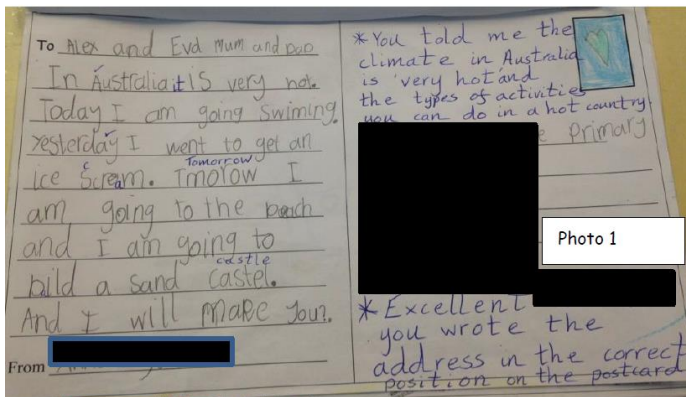 To Alex and Eva Mum and Dad
In Australia it is very hot.
Today I am going Swiming.
Yesterday I went to get an
ice Scream.
Tomorrow
Tmolow I
am going to the beach
and I am going to
castle
bild a sand castel.
And I will make you?.
From
*You told me the
climate in Australia
is very hot and
the types of activities
you can do in a hot country.
Primary
Photo 1
*Excellent
you wrote the
address in the correct
position on the postcard